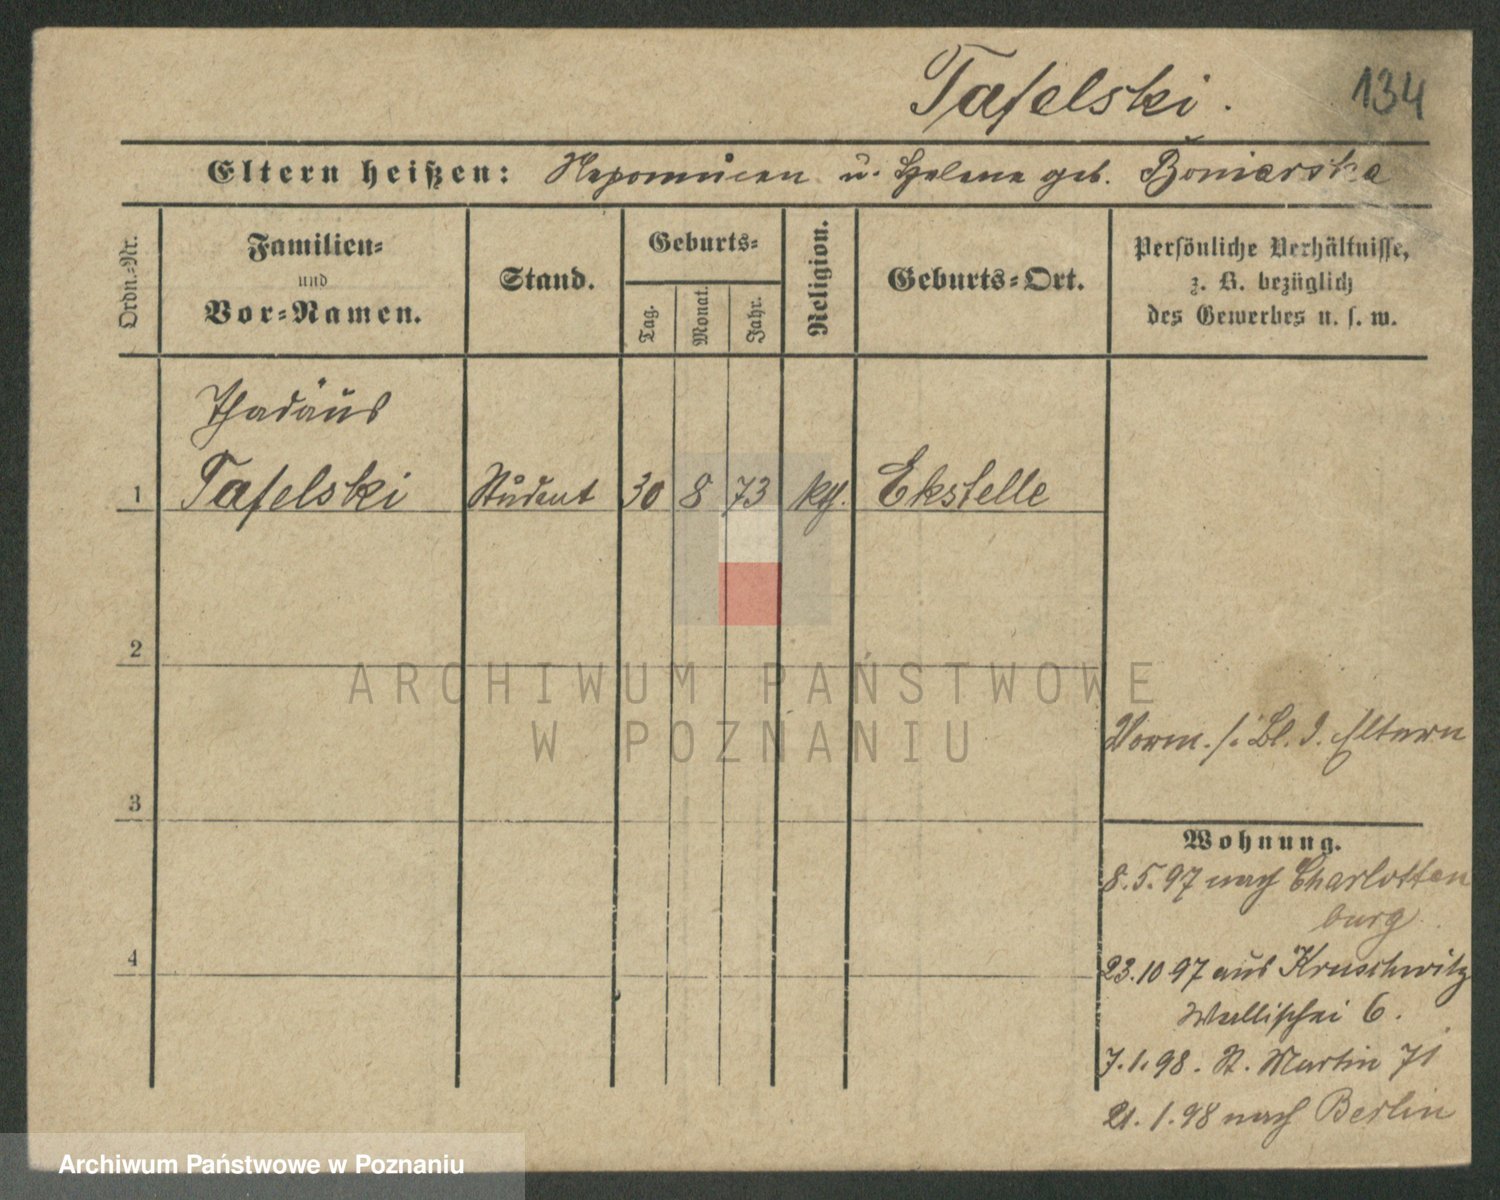 Tafelski.
134
Eltern heißen: Nepomucen u. Helene geb. Boniarska
Ordn.-Nr.
Familien-
und
Vor-Namen.
Stand.
Geburts-
Tag.
Monat.
Jahr.
Religion.
Geburts-Ort.
Persönliche Verhältnisse,
z. B. bezüglich
des Gewerbes u. s. w.
Thadäus
1 Tafelski Student 30 8 73 kth. Ekstelle
2
ARCHIWUM PAŃSTWOWE
W POZNANIU
Vorm. s. Bl. d. Eltern
3
Wohnung.
8.5.97 nach Charlotten
burg
4
23.10 97 aus Kruschwitz
Wallischei 6.
7.1.98. St. Martin 71
21.1.98 nach Berlin
Archiwum Państwowe w Poznaniu